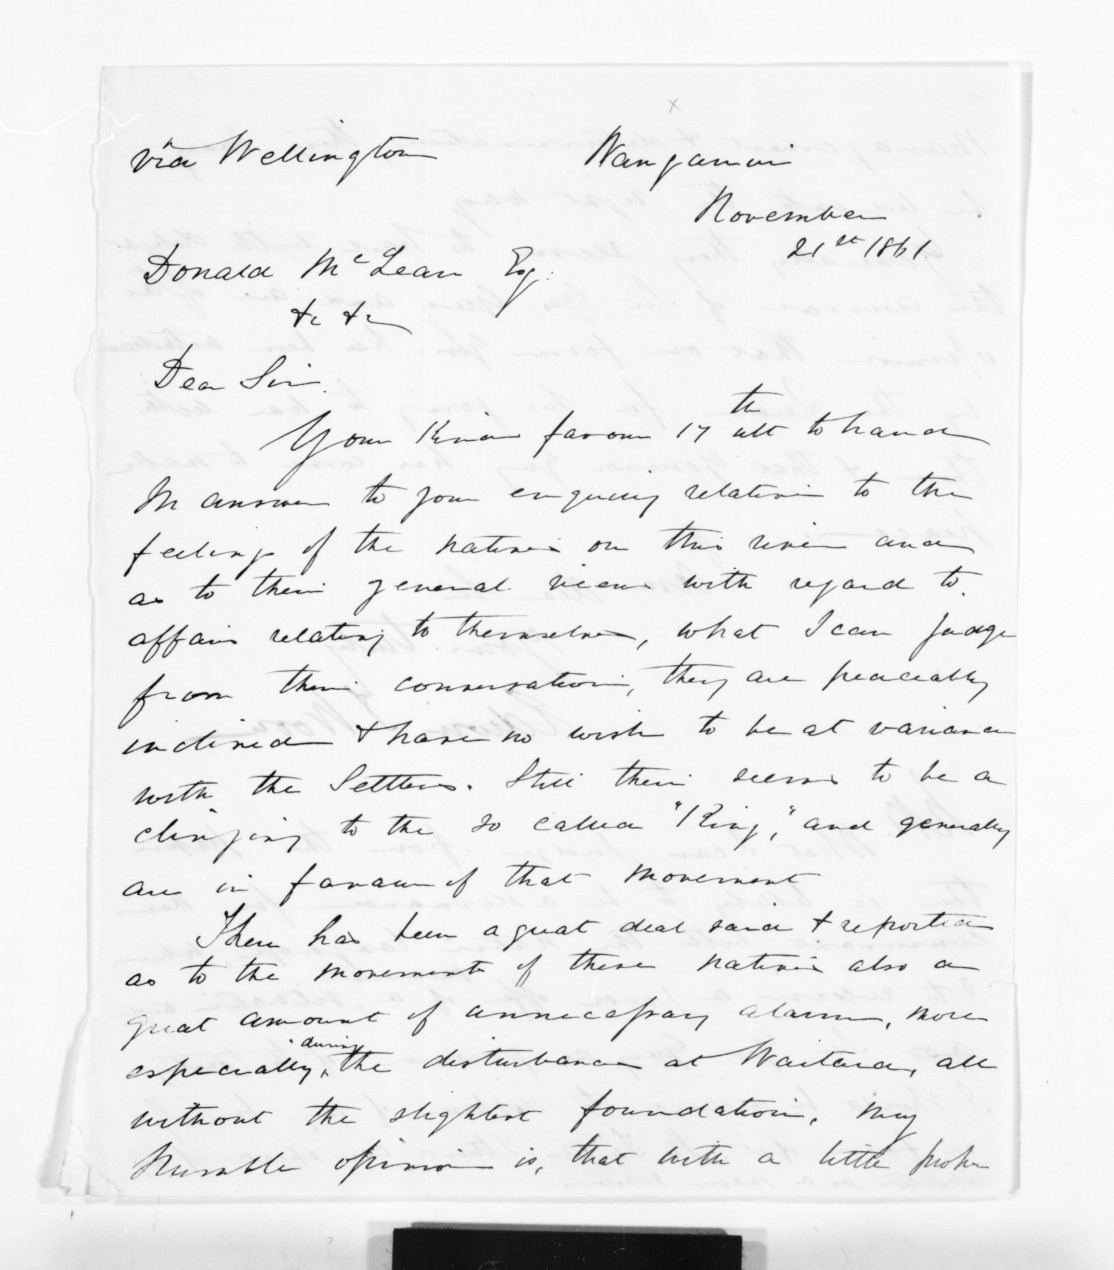 via Wellington
Wanganui
November
21st 1861
Donald McLean Esq.
&c &c
Dear Sir.
Your Kind favour 17th ult to hand
In answer to your enquiry relative to the
feelings of the natives on this river and
as to their general views with regard to
affairs relating to themselves, what I can judge
from their conversation, they are peaceably
inclined & have no wish to be at variance
with the Settlers. Still their seems to be a
clinging to the so called "King," and generally
are in favour of that movement
There has been a great deal said & reported
as to the movements of these natives also a
great amount of unnecessary alarm, more
especially, during the disturbance at Waitara, all
without the slightest foundation, My
humble opinion is, that with a little proper